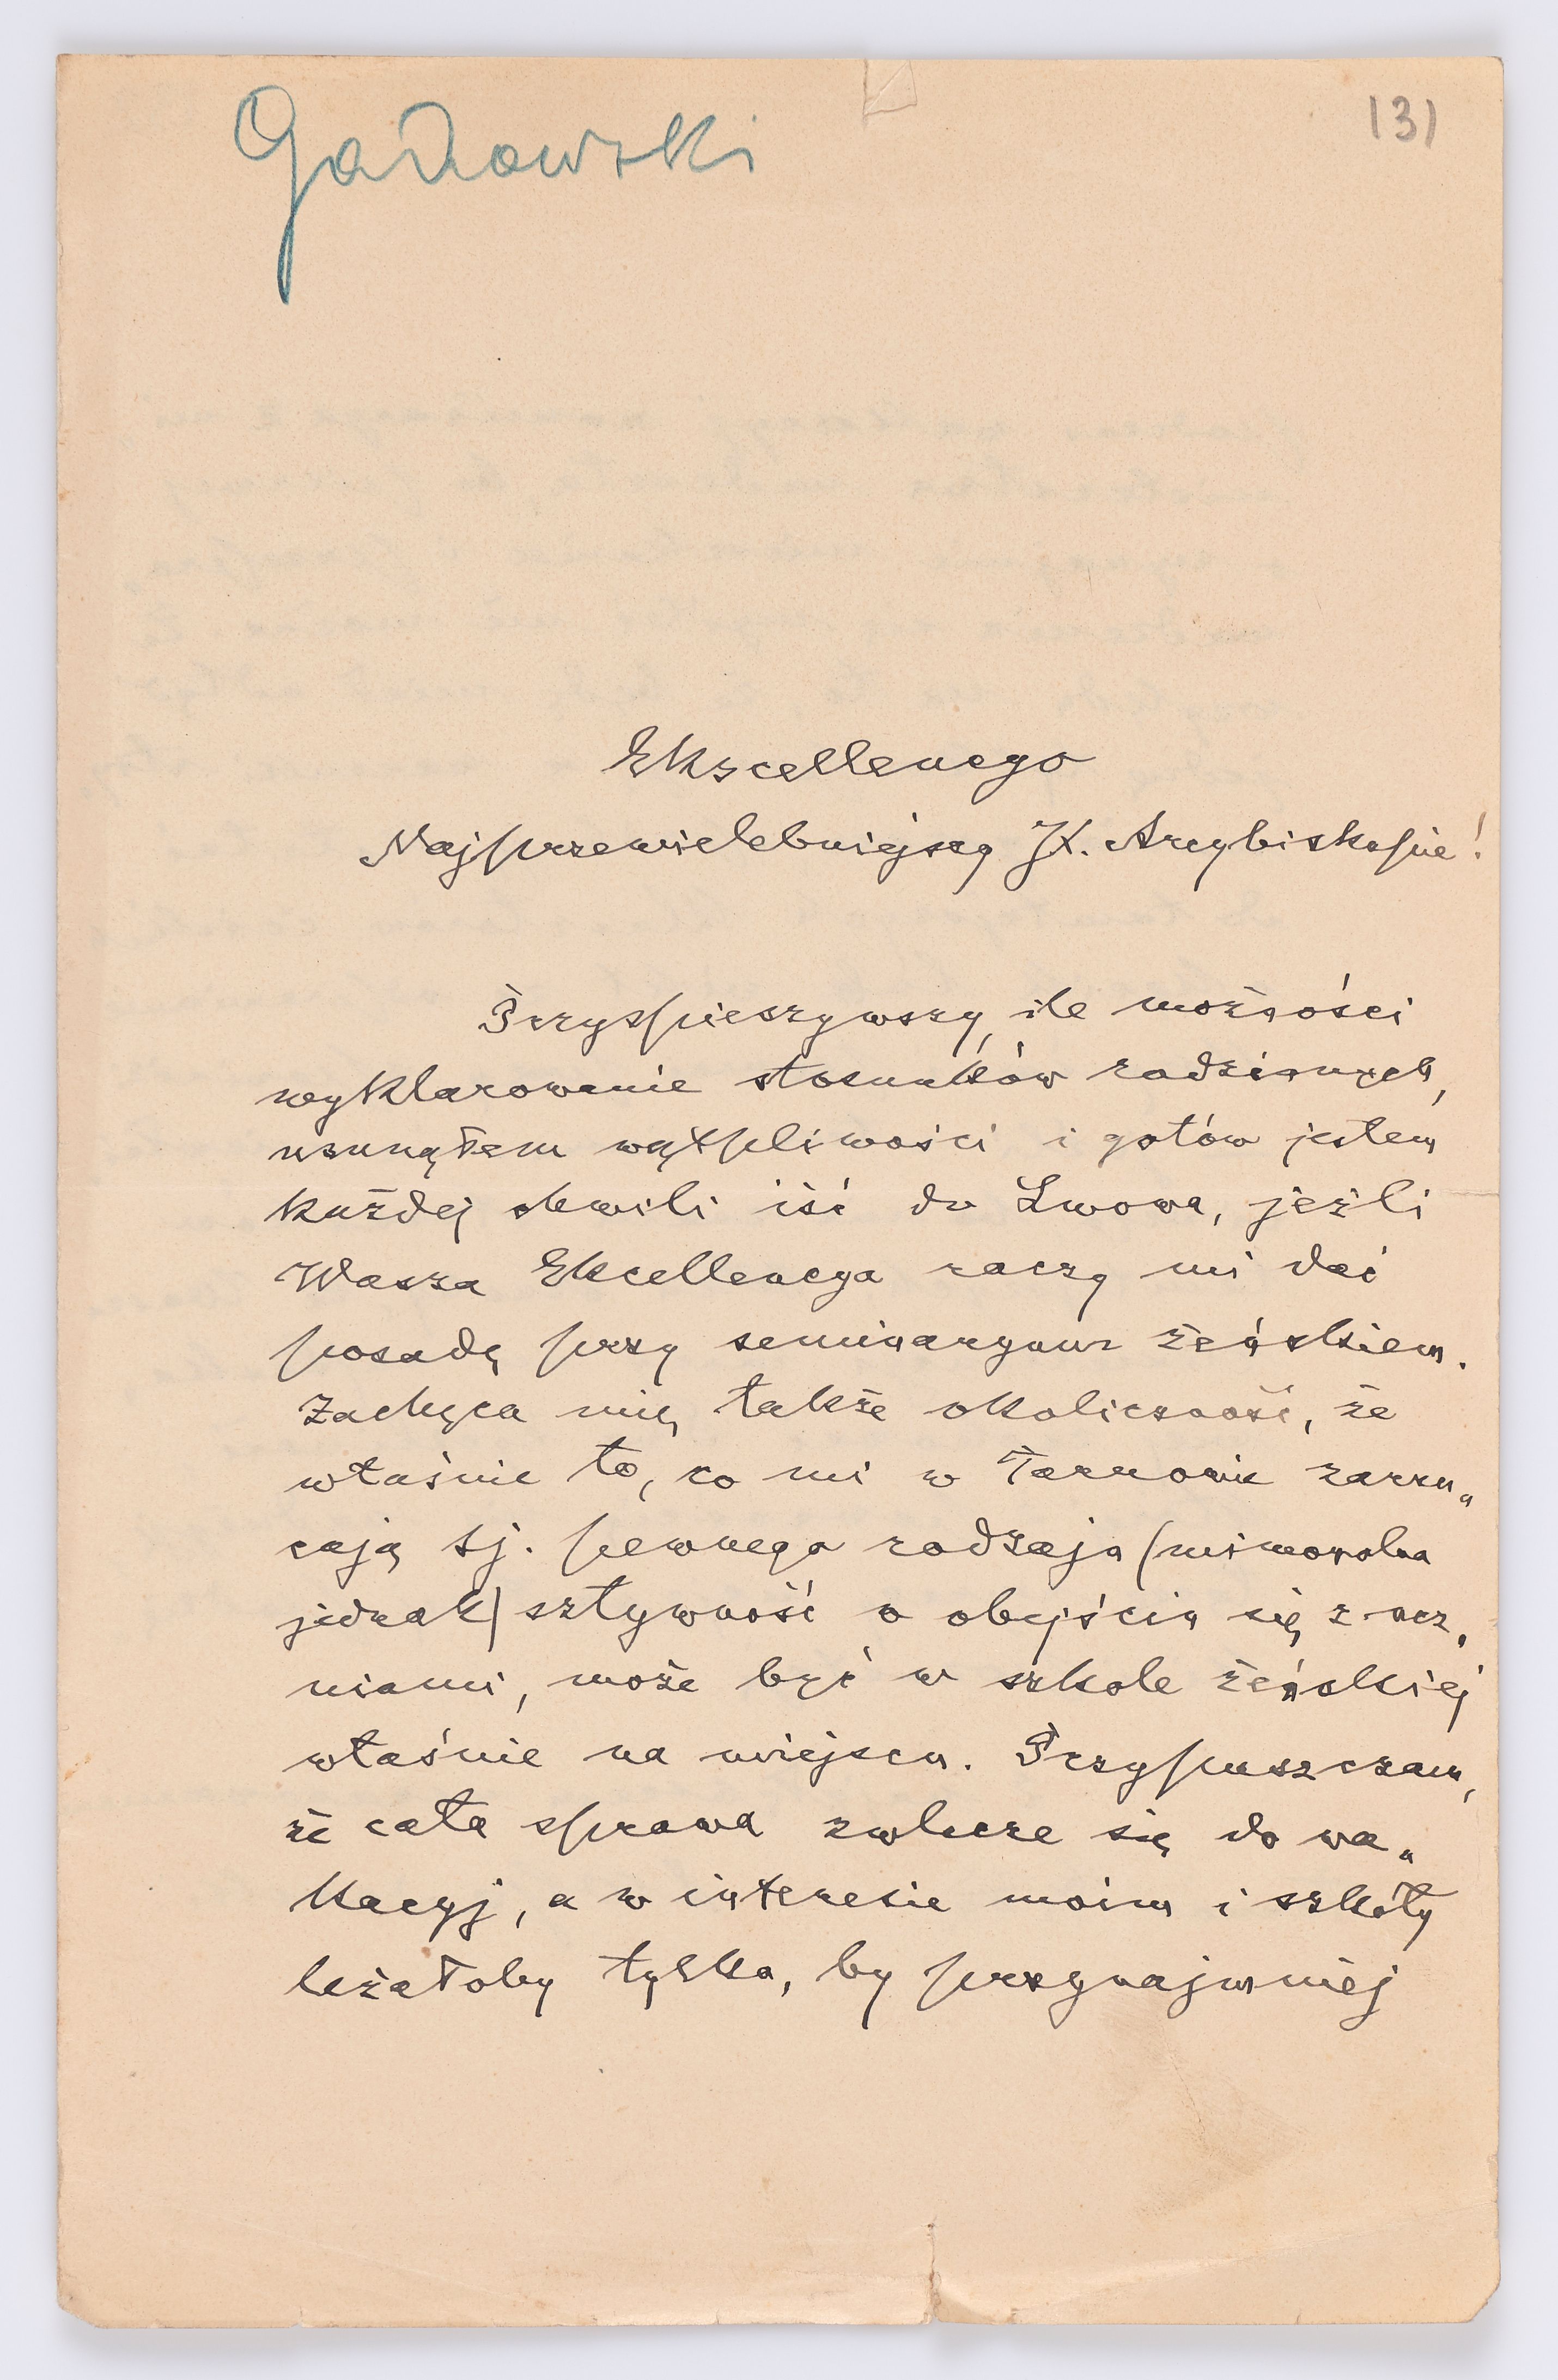 Gadowski
131
Ekscellencyo
Najprzewielebniejszy X. Arcybiskupie!
Przyspieszywszy, ile możności
wyklarowanie stosunków rodzinnych,
usunąłem wątpliwości i gotów jestem
każdej chwili iść do Lwowa, jeżli
Wasza Ekscellencya raczy mi dać
posadę przy seminaryum żeńskiem.
Zachęca mię także okoliczność, że
właśnie to, co mi w Tarnowie zarzu„
cają tj. pewnego rodzaju (mimowolna
jednak) sztywność w obejściu się z ucz„
niami, może być w szkole żeńskiej
właśnie na miejscu. Przypuszczam,
że cała sprawa zwlecze się do wa„
kacyj, a w interesie moim i szkoły
leżałoby tylko, by przynajmniej